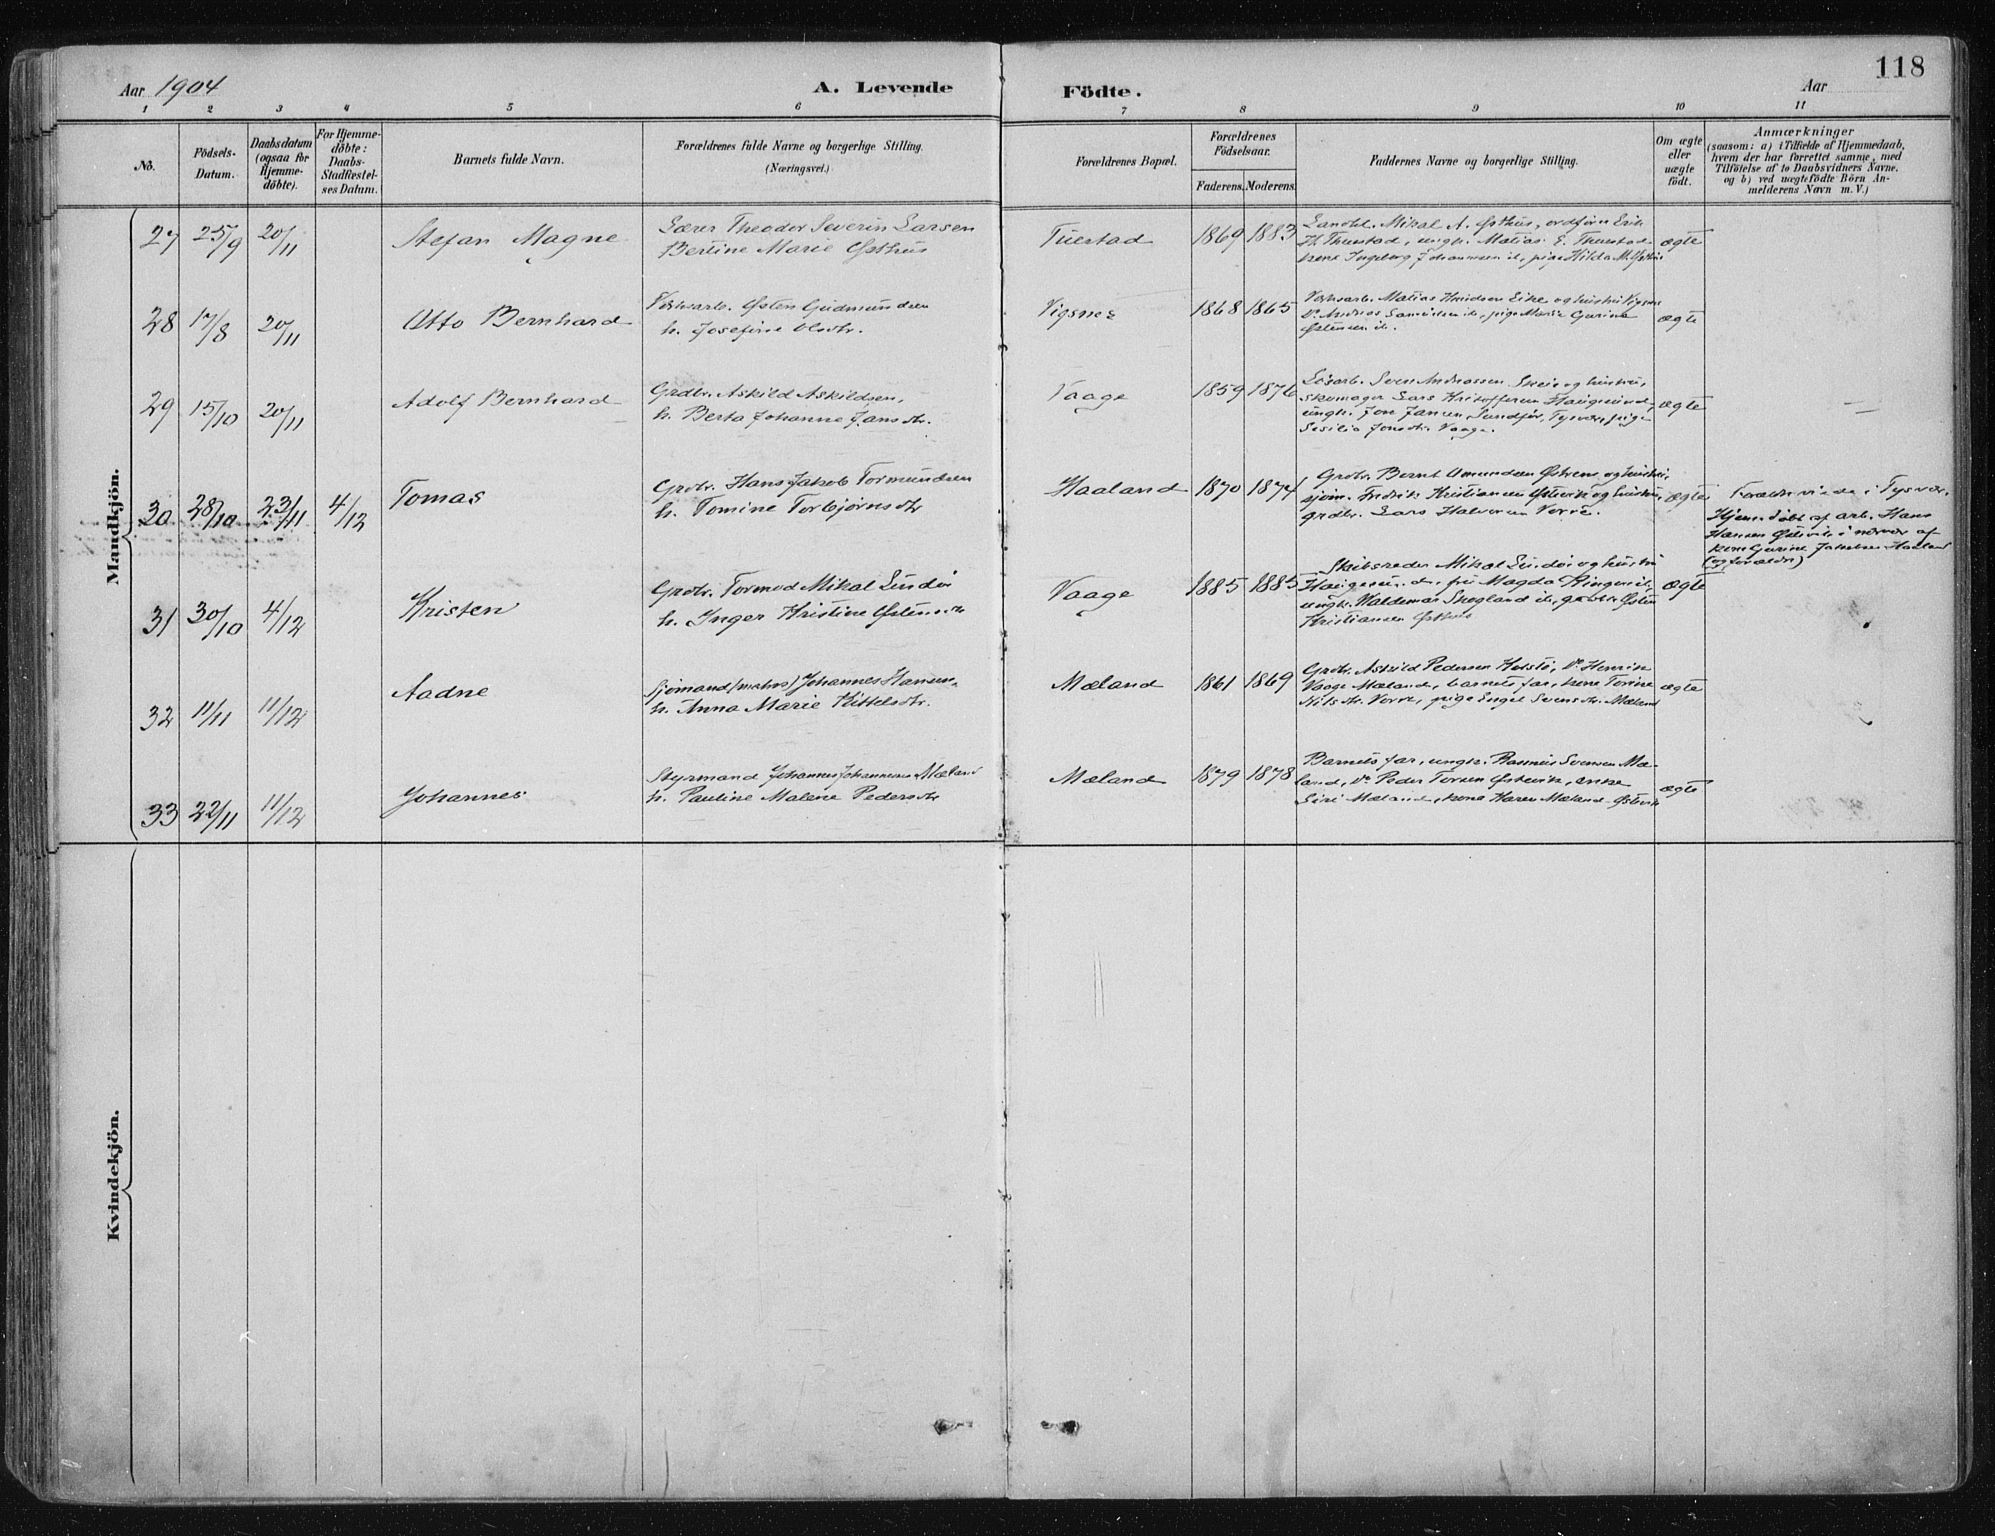 118
Aar 1904
A. Levende
Födte.
Aar
1 2 3 4 5 6 7 8 9 10 11
No.
Födsels-
Datum.
Daabsdatum
(ogsaa for
Hjemme-
döbte).
For Hjemme-
döbte:
Daabs-
Stadfæstel-
ses Datum.
Barnets fulde Navn.
Forældrenes fulde Navne og borgerlige Stilling.
(Næringsvei.)
Forældrenes Bopæl.
Forældrenes
Födselsaar.
Faderens. Moderens.
Faddernes Navne og borgerlige Stilling.
Om ægte
eller
uægte
födt.
Anmærkninger
(saasom: a) i Tilfælde af Hjemmedaab,
hvem der har forrettet samme, med
Tilföielse af to Daabsvidners Navne.
og b) ved uægtefödte Börn An-
melderens Navn m. V.)
Mandkjön.
27 25/9 20/11 Stefan Magne
Lærer Theodor Severin Larsen
Bertine Marie Østhus
Tuestad 1869 1883
Landhl. Mikal A. Østhus, ordfører Erik
Th. Thuestad, ungk. Matias E. Thuestad
kone Ingeborg Johannesen ib., pige Hilda M. Østhus
ægte
28 17/8 20/11 Otto Bernhard
Verksarb. Østen Gudmundsen
h. Josefine Olsdtr.
Vigsnes 1868 1865
Verksarb. Matias Knudsen Eike og hustru Vigsnes
Do Andreas ib., pige Marie Gurine
Østensen ib.
ægte
29 15/10 20/11 Adolf Bernhard
Grdbr. Askild Askildsen,
h. Berta Johanne Jansdtr.
Vaage 1859 1876
Løsarb. Sven Andreassen Skeie og hustru,
skomager Lars Kristoffersen Haugesund,
ungk. Jon Jansen, Sundfør, Tysvær, pige
Sesilia Jonsdtr. Vaage.
ægte
30 28/10 23/11 4/12 Tomas
Grdbr. Hans Jakob Tormundsen
h. Tomine Torbjørnsdtr
Haaland 1870 1874
Grdbr. Bernt Amundsen Østrem og hustru,
sjøm. Fredrik Kristiansen Østevik og hustru,
grdbr. Lars Halvorsen Vorre.
ægte
Foræld. viede i Tysvær.
Hjem. døbt af arb. Hans
Hansen Østevik i nærvær af
kone Gurine Jakobsen Haaland
(og forældre)
31 30/10 4/12 Kristen
Grdbr. Tormod Mikal Lindøe
h. Inger Kristine Østensdtr
Vaage 1885 1885
Skibsreder Mikal Lindøe og hustru
Haugesund, fru Magda Ringen ib,
ungk. Valdemar Skogland ib, grdbr. Østen
Kristiansen Østhus
ægte
32 11/11 11/12 Aadne
Sjømand (matros) Johannes Hansen,
h. Anna Marie Kittelsdtr.
Mæland 1861 1869
Grdbr. Askild Pedersen Hetstø, Do Henrik
Vaage Mæland, barnets far, kone Tomine
Nilsdtr. Vorre, pige Engel Svensdtr. Mæland
ægte
33 22/11 11/12 Johannes
Styrmand Johannes Johannesen Mæland
h. Pauline Malene Pedersdtr
Mæland 1879 1878
Barnets far, ungk. Rasmus Svensen Mæ-
land, Do Peder Torsen Østevik, enke
Siri Mæland, kone Karen Mæland Østevik
ægte
Kvindekjön.